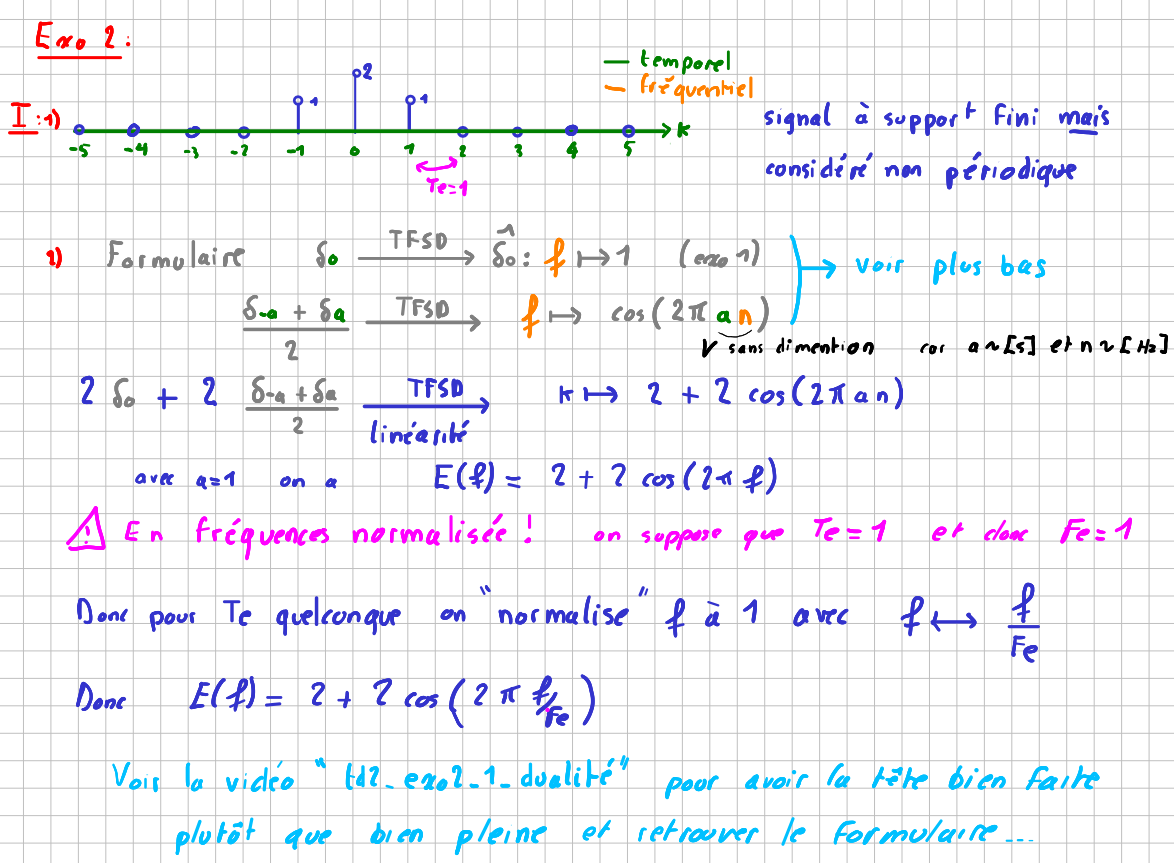 Exo 2:
temporel
fréquentiel
I:1)
1 2 1
k
-5 -4 -3 -2 -1 0 1 2 3 4 5
Te=1
signal à support fini mais
considéré non périodique
2) Formulaire δ0 TFSD → δ̂0: f ↦ 1 (exo 1)
voir plus bas
(δ-a + δa)/2 TFSD → f ↦ cos(2π a n)
sans dimention car a ~ [s] et n ~ [Hz]
2 δ0 + 2 (δ-a + δa)/2 TFSD → k ↦ 2 + 2 cos(2π a n)
linéarité
avec a=1 on a E(f) = 2 + 2 cos(2π f)
⚠ En fréquences normalisée! on suppose que Te=1 et donc Fe=1
Donc pour Te quelconque on "normalise" f à 1 avec f ↔ f/Fe
Donc E(f) = 2 + 2 cos(2π f/Fe)
Voir la vidéo "td2_exo2_1_dualité" pour avoir la tête bien faite
plutôt que bien pleine et retrouver le formulaire...